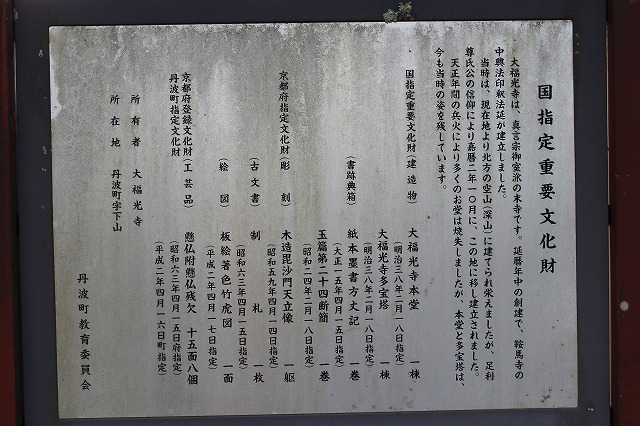 国指定重要文化財
大福光寺は、真言宗御室派の末寺です。延暦年中の創建で、鞍馬寺の
中興法印釈法延が建立しました。
当時は、現在地より北方の空山(深山)に建てられ栄えましたが、足利
尊氏公の信仰により嘉暦二年一〇月に、この地に移し建立されました。
天正年間の兵火により多くのお堂は焼失しましたが、本堂と多宝塔は、
今も当時の姿を残しています。
国指定重要文化財(建造物) 大福光寺本堂 一棟
(明治三八年二月一八日指定)
大福光寺多宝塔 一棟
(明治三八年二月一八日指定)
(書跡典籍) 紙本墨書方丈記 一巻
(大正一五年四月一五日指定)
玉篇第二十四断簡 一巻
(昭和二四年二月一八日指定)
京都府指定文化財(彫刻) 木造毘沙門天立像 一躯
(昭和五九年四月一四日指定)
(古文書) 制札 一枚
(昭和六三年四月一五日指定)
(絵図) 板絵著色竹虎図 一面
(平成二年四月一七日指定)
京都府登録文化財(工芸品) 懸仏附懸仏残欠 十五面八個
丹波町指定文化財 (昭和六三年四月一五日府指定)
(平成二年四月一六日町指定)
所有者 大福光寺
所在地 丹波町字下山
丹波町教育委員会